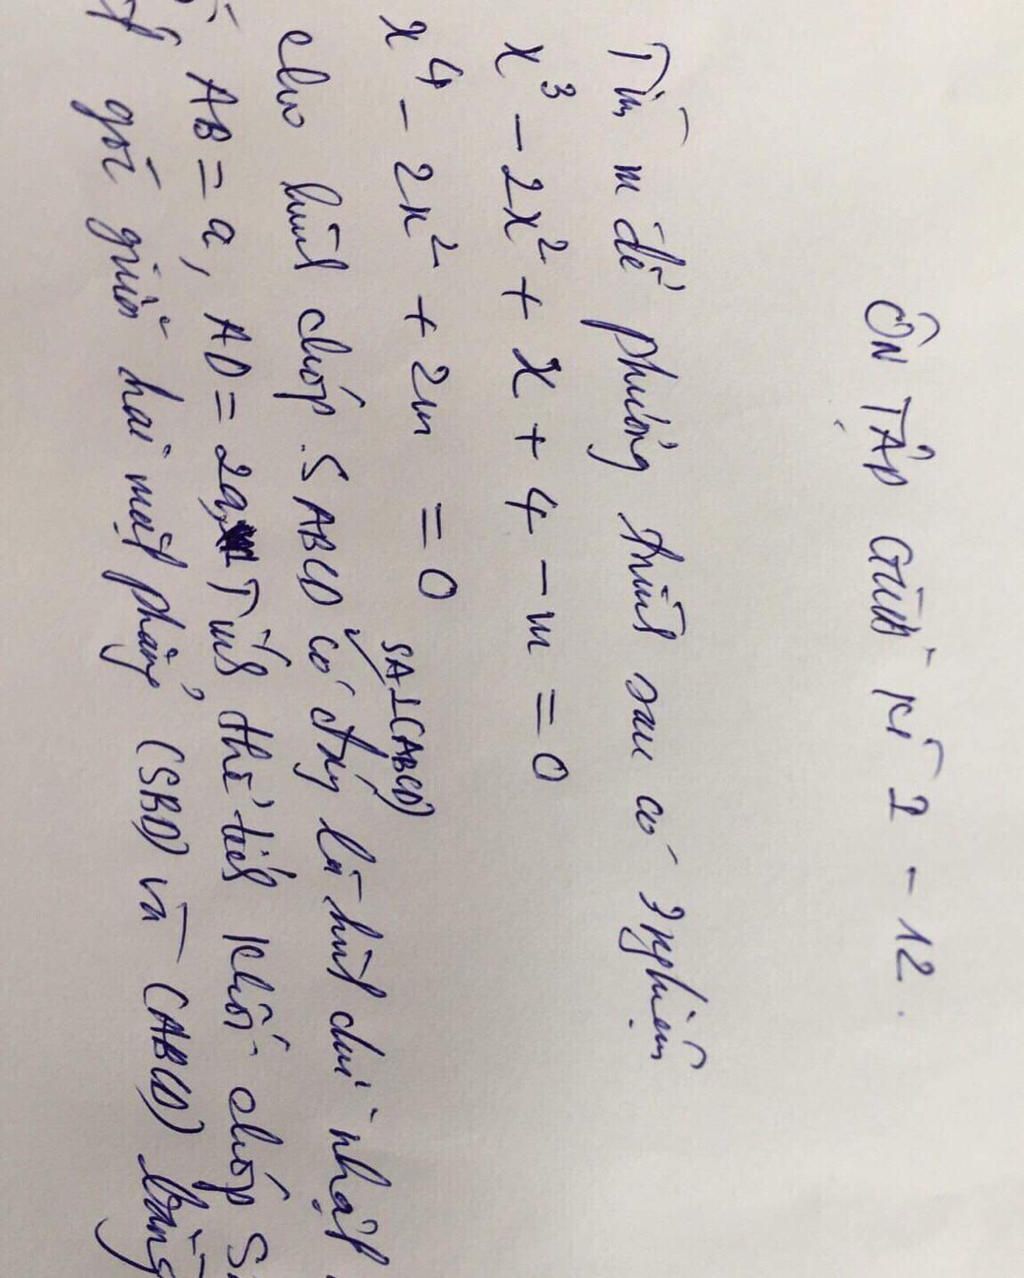 ÔN TẬP GIỮA KÌ I - 12.
Tìm m để phương trình sau có 3 nghiệm
x³ - 2x² + x + 4 - m = 0
x⁴ - 2x² + 2m = 0
SA⊥(ABCD)
cho hình chóp. SABCD có đáy là hình chữ nhật
AB = a, AD = 2a, Tính thể tích khối chóp S
góc giữa hai mặt phẳng (SBD) và (ABCD) bằng